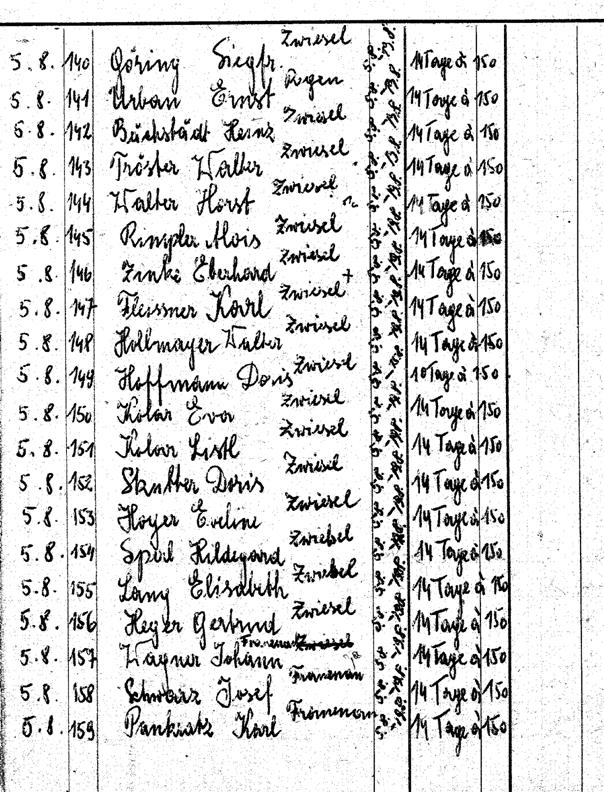 5.8. 140 Göring Siegfr. Zwiesel 5.8. 19.8. 14 Tage à 150
5.8. 141 Urban Ernst Regen 5.8. 19.8. 14 Tage à 150
5.8. 142 Buchstädt Heinz Zwiesel 5.8. 19.8. 14 Tage à 150
5.8. 143 Tröster Walter Zwiesel 5.8. 19.8. 14 Tage à 150
5.8. 144 Walter Horst Zwiesel 5.8. 19.8. 14 Tage à 150
5.8. 145 Rimpler Alois Zwiesel 5.8. 19.8. 14 Tage à 150
5.8. 146 Zinke Eberhard Zwiesel 5.8. 19.8. 14 Tage à 150
5.8. 147 Fleissner Karl Zwiesel + 5.8. 19.8. 14 Tage à 150
5.8. 148 Hollmayer Walter Zwiesel 5.8. 19.8. 14 Tage à 150
5.8. 149 Hoffmann Doris Zwiesel 5.8. 10 Tage à 150
5.8. 150 Kolar Eva Zwiesel 5.8. 19.8. 14 Tage à 150
5.8. 151 Kolar Listl Zwiesel 5.8. 19.8. 14 Tage à 150
5.8. 152 Doris Zwiesel 5.8. 19.8. 14 Tage à 150
5.8. 153 Hoyer Eveline Zwiesel 5.8. 19.8. 14 Tage à 150
5.8. 154 Hildegard Zwiesel 5.8. 19.8. 14 Tage à 150
5.8. 155 Lang Elisabeth Zwiesel 5.8. 19.8. 14 Tage à 150
5.8. 156 Heyer Gertrud Zwiesel 5.8. 19.8. 14 Tage à 150
5.8. 157 Wagner Johann Frauenau Zwiesel 5.8. 19.8. 14 Tage à 150
5.8. 158 Schwarz Josef Frauenau 5.8. 19.8. 14 Tage à 150
5.8. 159 Pankratz Karl Frauenau 5.8. 19.8. 14 Tage à 150